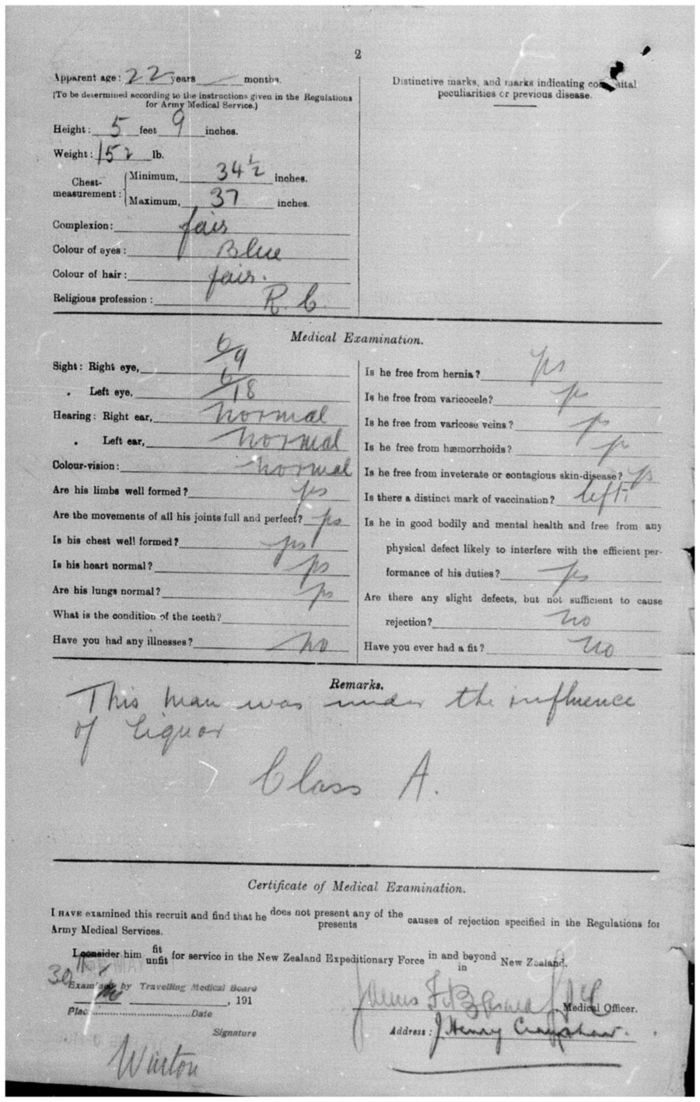 2
Apparent age: 22 years — months.
(To be determined according to the instructions given in the Regulations
for Army Medical Service.)
Height: 5 feet 9 inches.
Weight: 152 lb.
Chest-measurement: Minimum, 34½ inches.
Maximum, 37 inches.
Complexion: fair
Colour of eyes: Blue
Colour of hair: fair.
Religious profession: R. C.
Distinctive marks, and marks indicating
peculiarities or previous disease.
Medical Examination.
Sight: Right eye, 6/9
" Left eye, 6/18
Hearing: Right ear, normal
" Left ear, normal
Colour-vision: normal
Are his limbs well formed? yes
Are the movements of all his joints full and perfect? yes
Is his chest well formed? yes
Is his heart normal? yes
Are his lungs normal? yes
What is the condition of the teeth?
Have you had any illnesses? no
Is he free from hernia? yes
Is he free from varicocele? yes
Is he free from varicose veins? yes
Is he free from hæmorrhoids? yes
Is he free from inveterate or contagious skin-disease? yes
Is there a distinct mark of vaccination? left
Is he in good bodily and mental health and free from any
physical defect likely to interfere with the efficient per-
formance of his duties? yes
Are there any slight defects, but not sufficient to cause
rejection? no
Have you ever had a fit? no
Remarks.
This man was under the influence
of liquor
Class A.
Certificate of Medical Examination.
I have examined this recruit and find that he does not present any of the / presents causes of rejection specified in the Regulations for
Army Medical Services.
I consider him fit / unfit for service in the New Zealand Expeditionary Force in and beyond / in New Zealand.
30
Examined by Travelling Medical Board
, 191
Place Date
Signature
James Medical Officer.
Address: J. Henry